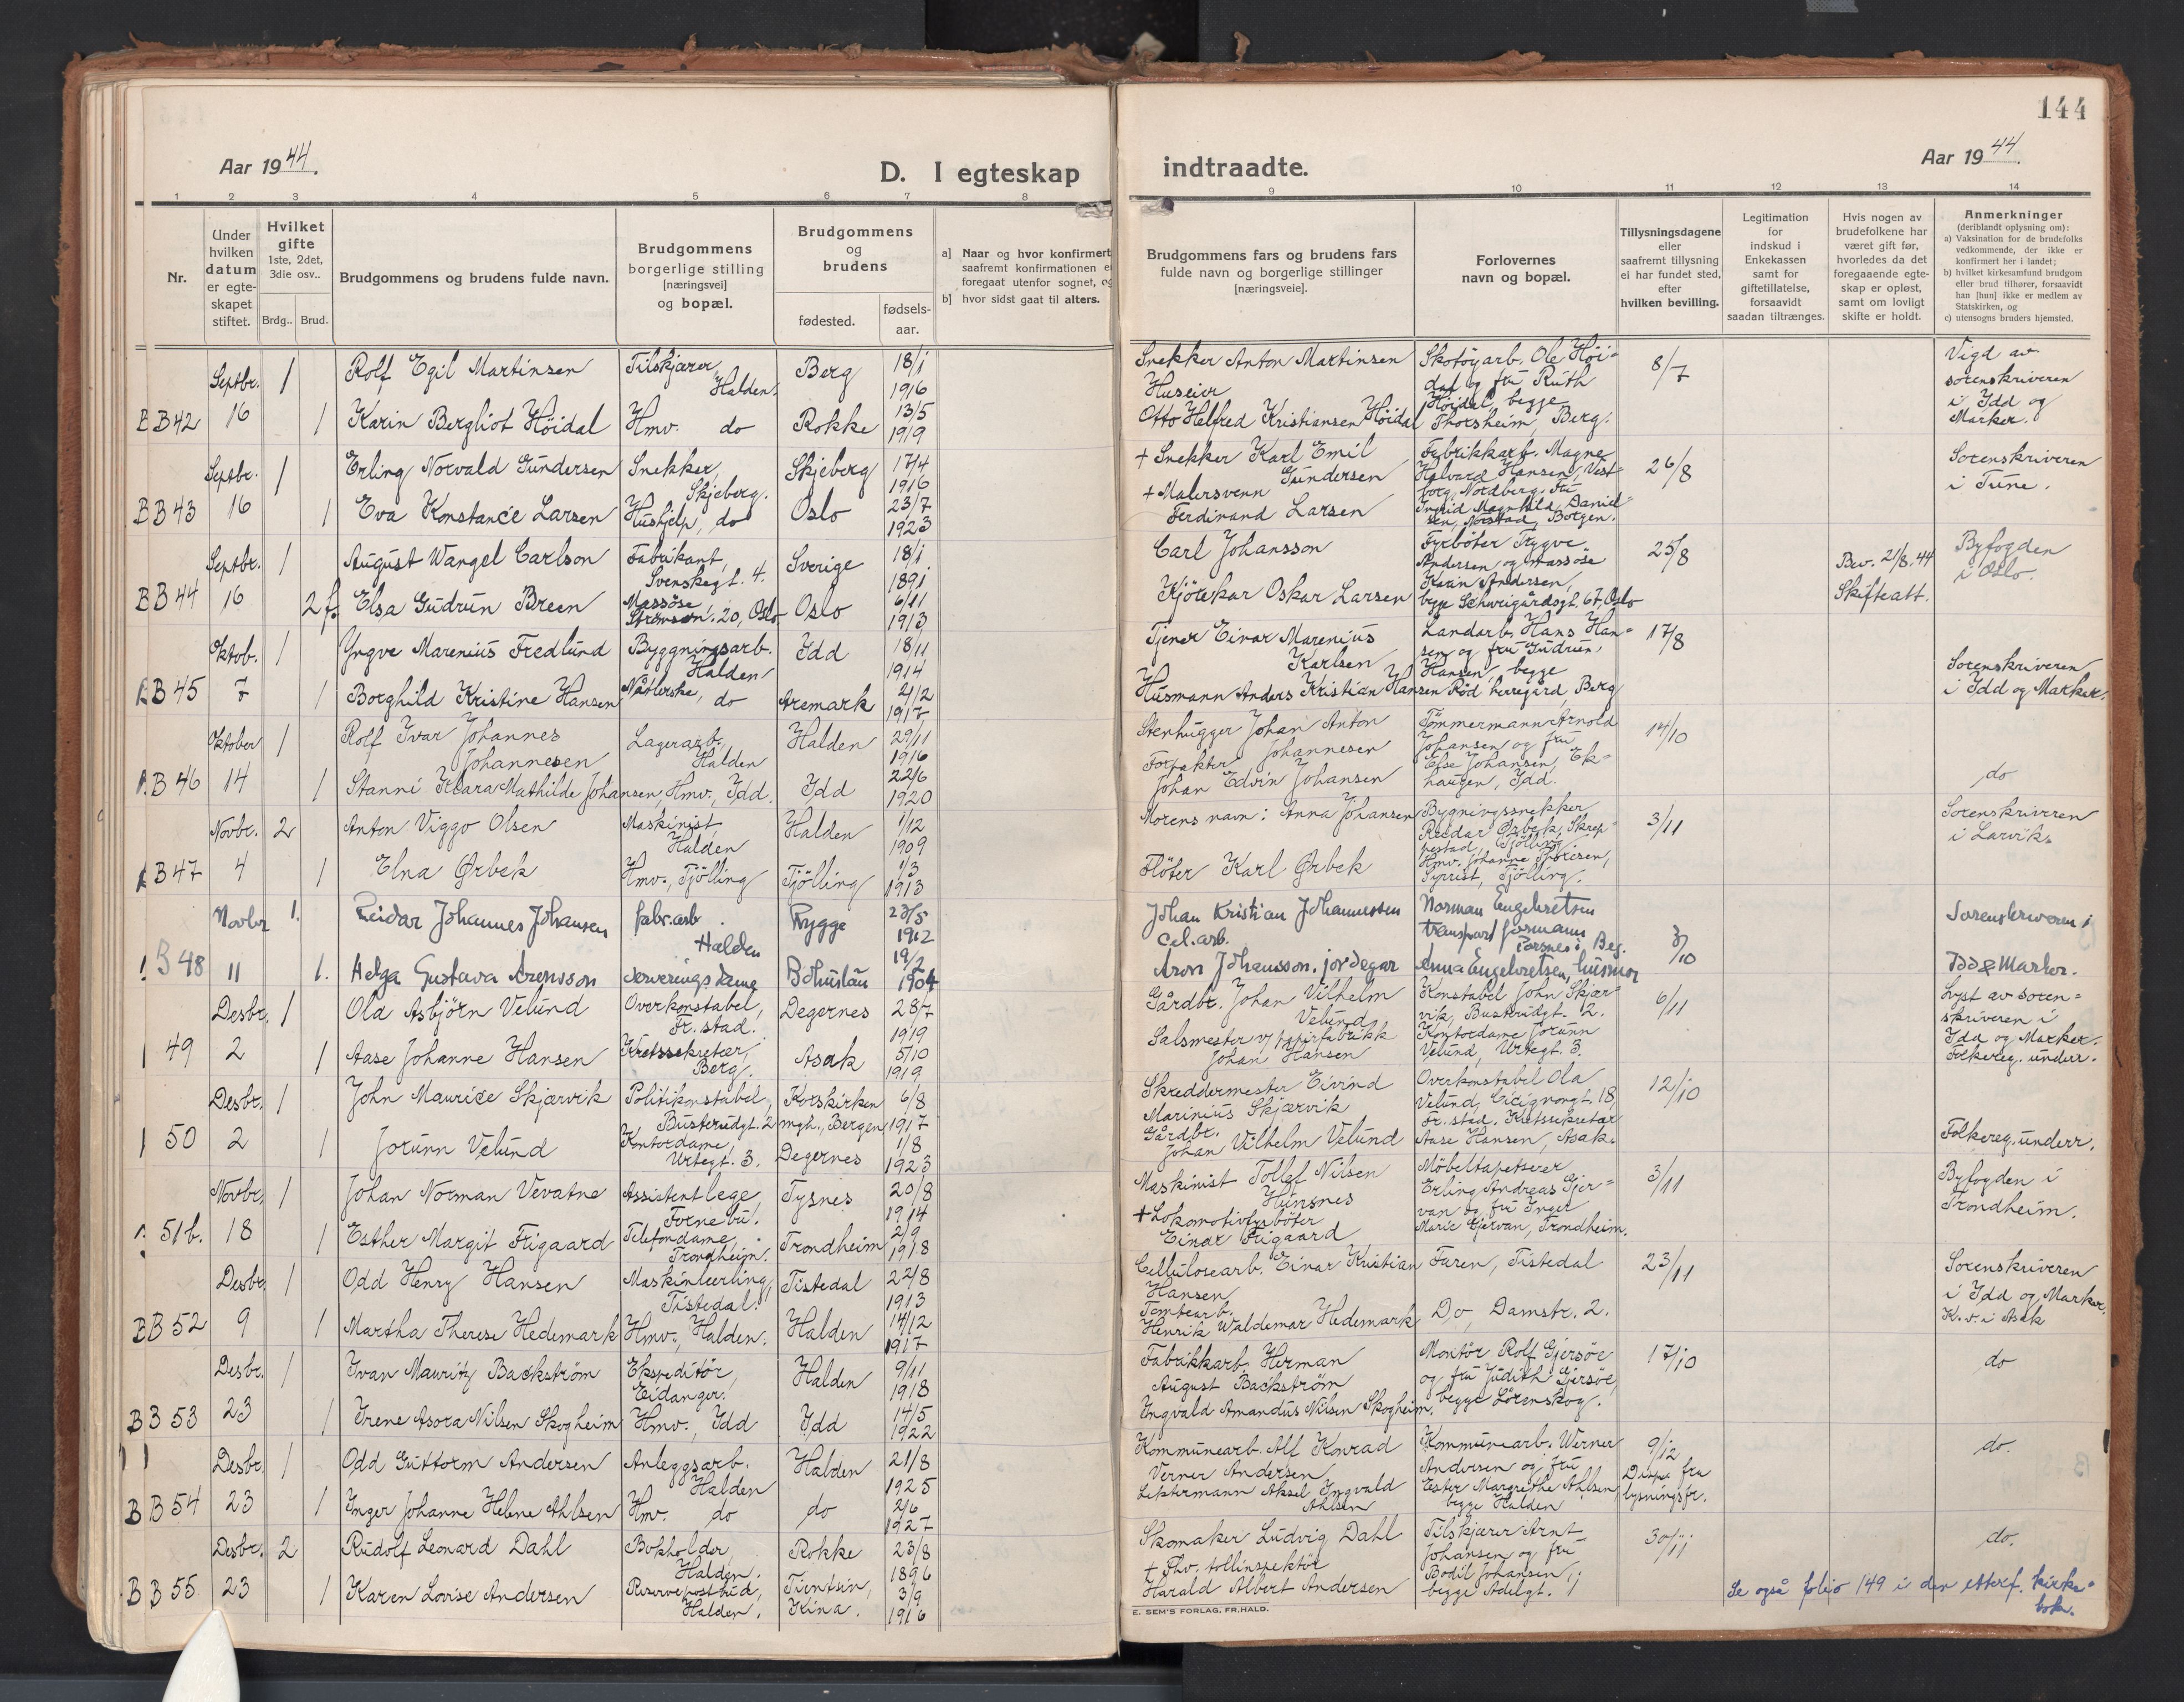 144
Aar 1944.
D. I egteskap
indtraadte.
Aar 1944.
1 2 3 4 5 6 7 8
9 10 11 12 13 14
Nr.
Under
hvilken
datum
er egte-
skapet
stiftet.
Hvilket
gifte
1ste, 2det,
3die osv..
Brdg.. Brud.
Brudgommens og brudens fulde navn.
Brudgommens
borgerlige stilling
[næringsvei]
og bopæl.
Brudgommens
og
brudens
fødested.
fødsels-
aar.
a] Naar og hvor konfirmert
saafremt konfirmationen e
foregaat utenfor sognet, og
b] hvor sidst gaat til alters.
Brudgommens fars og brudens fars
fulde navn og borgerlige stillinger
[næringsveie].
Forlovernes
navn og bopæl.
Tillysningsdagene
eller
saafremt tillysning
ei har fundet sted,
efter
hvilken bevilling.
Legitimation
for
indskud i
Enkekassen
samt for
giftetillatelse,
forsaavidt
saadan tiltrænges.
Hvis nogen av
brudefolkene har
været gift før,
hvorledes da det
foregaaende egte-
skap er opløst,
samt om lovligt
skifte er holdt.
Anmerkninger
(deriblandt oplysning om):
a) Vaksination for de brudefolks
vedkommende, der ikke er
konfirmert her i landet;
b) hvilket kirkesamfund brudgom
eller brud tilhører, forsaavidt
han [hun] ikke er medlem av
Statskirken, og
c) utensogns bruders hjemsted.
Septbr. 1 Rolf Egil Martinsen Tilskjærer, Halden. Berg 18/1 1916
B B 42 16 1 Karin Bergliot Höidal Hmv. do Rokke 13/5 1919
Snekker Anton Martinsen
Huseier
Otto Halfred Kristiansen Höidal
Skotöyarb. Ole Höi-
dal og fru Ruth
Höidal, begge
Thorsheim, Berg.
8/7
Vigd av
sorenskriveren
i Idd og
Marker.
Septbr. 1 Erling Norvald Gundersen Snekker, Skjeberg. Skjeberg 17/4 1916
B B 43 16 1 Eva Konstance Larsen Hushjelp, do Oslo 23/7 1923
+ Snekker Karl Emil
Gundersen
+ Malersvenn
Ferdinand Larsen
Fabrikkarb. Magne
Halvard Hansen, Vest-
borg, Nordberg. Fru
Ingrid Magnhild Daniel-
sen, Norstad, Borgen.
26/8
Sorenskriveren
i Tune.
Septbr. 1 August Wangel Carlson Fabrikant, Svenskegt. 4. Sverige 18/1 1891
B B 44 16 2 f. Elsa Gudrun Breen Massöse 20, Oslo Oslo 6/11 1913
Carl Johansson
Kjörekar Oskar Larsen
Fyrböter Trygve
Andersen og massöse
Karin Andersen,
begge Schweigårdsgt. 67, Oslo
25/8
Bev. 21/8. 44
Skifteatt.
Byfogden
i Oslo.
Oktob. 1 Yngve Marenius Fredlund Byggningsarb. Halden Idd 18/11 1914
B B 45 7 1 Borghild Kristine Hansen Nåtlerske, do Aremark 21/2 1917
Tjener Einar Marenius
Karlsen
Husmann Anders Kristian Hansen
Landarb. Hans Han-
sen og fru Gudrun
Hansen, begge
Röd herregård, Berg
17/8
Sorenskriveren
i Idd og Marker.
Oktober 1 Rolf Ivar Johannes
Johannesen Lagerarb., Halden Halden 29/11 1916
B 46 14 1 Stanni Klara Mathilde Johansen, Hmv., Idd. Idd 22/6 1920
Stenhugger Johan Anton
Johannesen
Forpakter
Johan Edvin Johansen
Tömmermann Arnold
Johansen og fru
Else Johansen, Ek-
haugen, Idd.
14/10
do
Novbr. 2 Anton Viggo Olsen Maskinist, Halden Halden 1/12 1909
B 47 4 1 Elna Ørbek Hmv., Tjölling Tjölling 1/3 1913
Morens navn: Anna Johansen
Flöter Karl Ørbek
Bygningssnekker
Reidar Ørbek, Skrep-
pestad, Tjölling
Hmv. Johanne Thoresen,
Syrrist, Tjölling.
3/11
Sorenskriveren
i Larvik.
Novbr 1. Reidar Johannes Johansen fabr.arb. Halden Rygge 23/5 1912
B 48 11 1. Helga Gustava Aronsson Serveringsdame Bohuslän 19/2 1904
Johan Kristian Johannessen
Cel.arb.
Aron Johansson. jordegar
Norman Engebretsen
transportformann
Porsnes i Beg.
Anna Engebretsen, husmor
3/10
Sorenskriveren i
Idd & Marker.
Desbr. 1 Ola Asbjörn Velund Overkonstabel, Fr. stad. Degernes 28/7 1919
49 2 1 Aase Johanne Hansen Kretssekretær, Berg. Asak 5/10 1919
Gårdbr. Johan Vilhelm
Velund
Salsmester v/ papirfabrikk
Johan Hansen
Konstabel John Skjær-
vik, Buskrudgt. 2.
Kontordame Jorunn
Velund, Urtegt. 3.
6/11
Lyst av soren-
skriveren i
Idd og Marker.
Folkereg. underr.
Desbr. 1 John Maurice Skjærvik Politikonstabel, Busterudgt. 2 Korskirken mgh., Bergen 6/8 1917
50 2 1 Jorunn Velund Kontordame, Urtegt. 3. Degernes 1/8 1923
Skreddermester Eivind
Marinius Skjærvik
Gårdbr.
Johan Vilhelm Velund
Overkonstabel Ola
Velund, Cicignongt. 18,
Fr. stad. Kretssekretær
Aase Hansen, Asak.
12/10
Folkereg. underr.
Novbr. 1 Johan Norman Vevatne Assistentlege, Fornebu. Tysnes 20/8 1914
51b. 18 1 Esther Margit Frigaard Telefondame, Trondheim. Trondheim 2/9 1918
Maskinist Tollef Nilsen
Hunsnes
+ Lokomotivfyrböter
Einar Frigaard
Möbeltapetserer
Erling Andreas Gjer-
van og fru Inger
Marie Gjervan, Trondheim.
3/11
Byfogden i
Trondheim.
Desbr. 1 Odd Henry Hansen Maskinlærling, Tistedal. Tistedal 22/8 1913
B B 52 9 1 Martha Therese Hedemark Hmv., Halden. Halden 14/12 1917
Cellulosearb. Einar Kristian
Hansen
Tomtearb.
Henrik Waldemar Hedemark
Faren, Tistedal
Do, Damstr. 2.
23/11
Sorenskriveren
i Idd og Marker.
K. v. i Asak
Desbr. 1 Ivan Mauritz Backström Ekspeditör, Eidanger. Halden 9/11 1918
B B 53 23 1 Irene Asora Nilsen Skogheim Hmv., Idd Idd 14/5 1922
Fabrikkarb. Herman
August Backström
Ingvald Amandus Nilsen Skogheim.
Montör Rolf Gjersöe
og fru Judith Gjersöe,
begge Lörenskog.
17/10
do
Desbr. 1 Odd Guttorm Andersen Anleggsarb. Halden Halden 21/8 1925
B B 54 23 1 Inger Johanne Helene Ahlsen Hmv. do do 2/6 1927
Kommunearb. Alf Konrad
Verner Andersen
Aksel Ingvald
Ahlsen
Kommunearb. Werner
Andersen og fru
Ester Margrethe Ahlsen,
begge Halden
9/12
Disp. fra
lysningsfr.
do.
Desbr. 2 Rudolf Leonard Dahl Bokholder, Halden. Rokke 23/8 1896
B B 55 23 1 Karen Lovise Andersen Reservepostbud, Halden. Tientsin, Kina. 3/9 1916
Skomaker Ludvig Dahl
+ Fhv. tollinspektör
Harald Albert Andersen
Tilskjærer Arnt
Johansen og fru
Bodil Johansen,
begge Adelgt. 1
30/11
do.
Se også folio 149 i den etterf. kirke-
bok.
E. SEM'S FORLAG, FR.HALD.